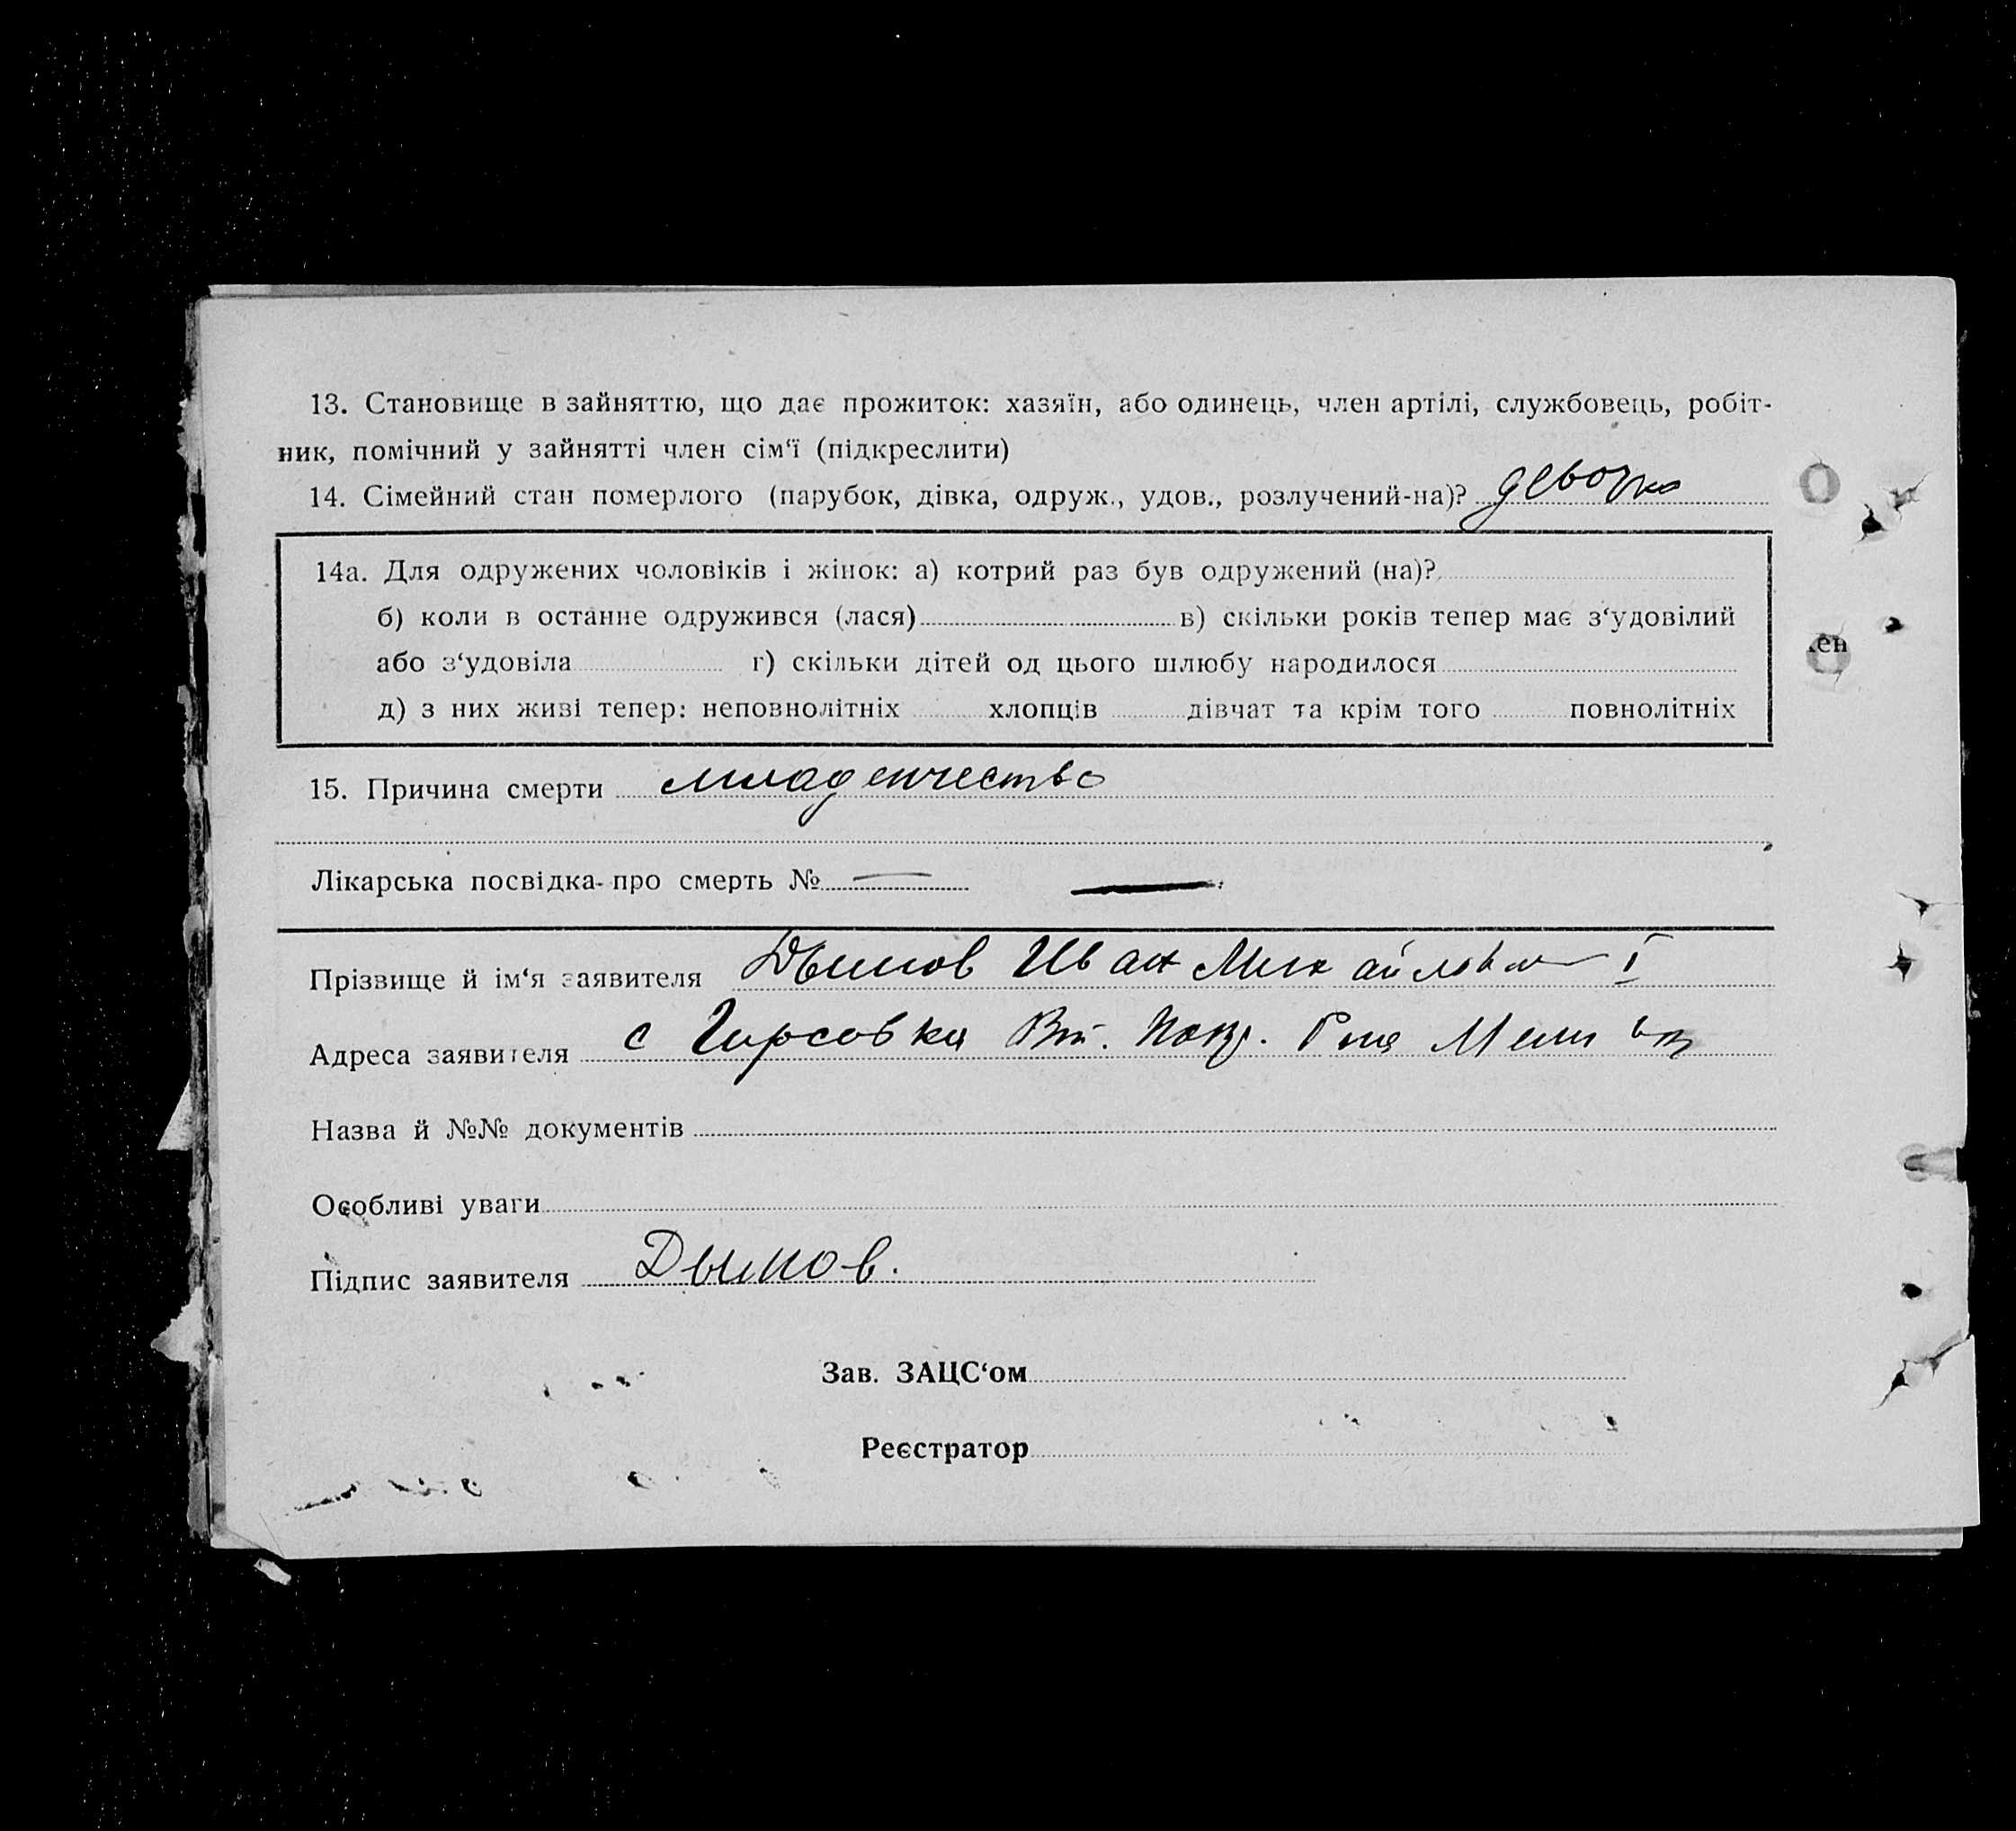 13. Становище в зайняттю, що дає прожиток: хазяїн, або одинець, член артілі, службовець, робіт-
ник, помічний у зайнятті член сім‘ї (підкреслити)
14. Сімейний стан померлого (парубок, дівка, одруж., удов., розлучений-на)? девочка
14а. Для одружених чоловіків і жінок: а) котрий раз був одружений (на)?
б) коли в останне одружився (лася) в) скільки років тепер має з‘удовілий
або з‘удовіла г) скільки дітей од цього шлюбу народилося
д) з них живі тепер: неповнолітніх хлопців дівчат та крім того повнолітніх
15. Причина смерти младенчество
Лікарська посвідка про смерть № —
Прізвище й ім‘я заявителя Дымов Иван Михайлович I
Адреса заявителя с Гирсовка
Назва й №№ документів
Особливі уваги
Підпис заявителя Дымов.
Зав. ЗАЦС‘ом
Реєстратор